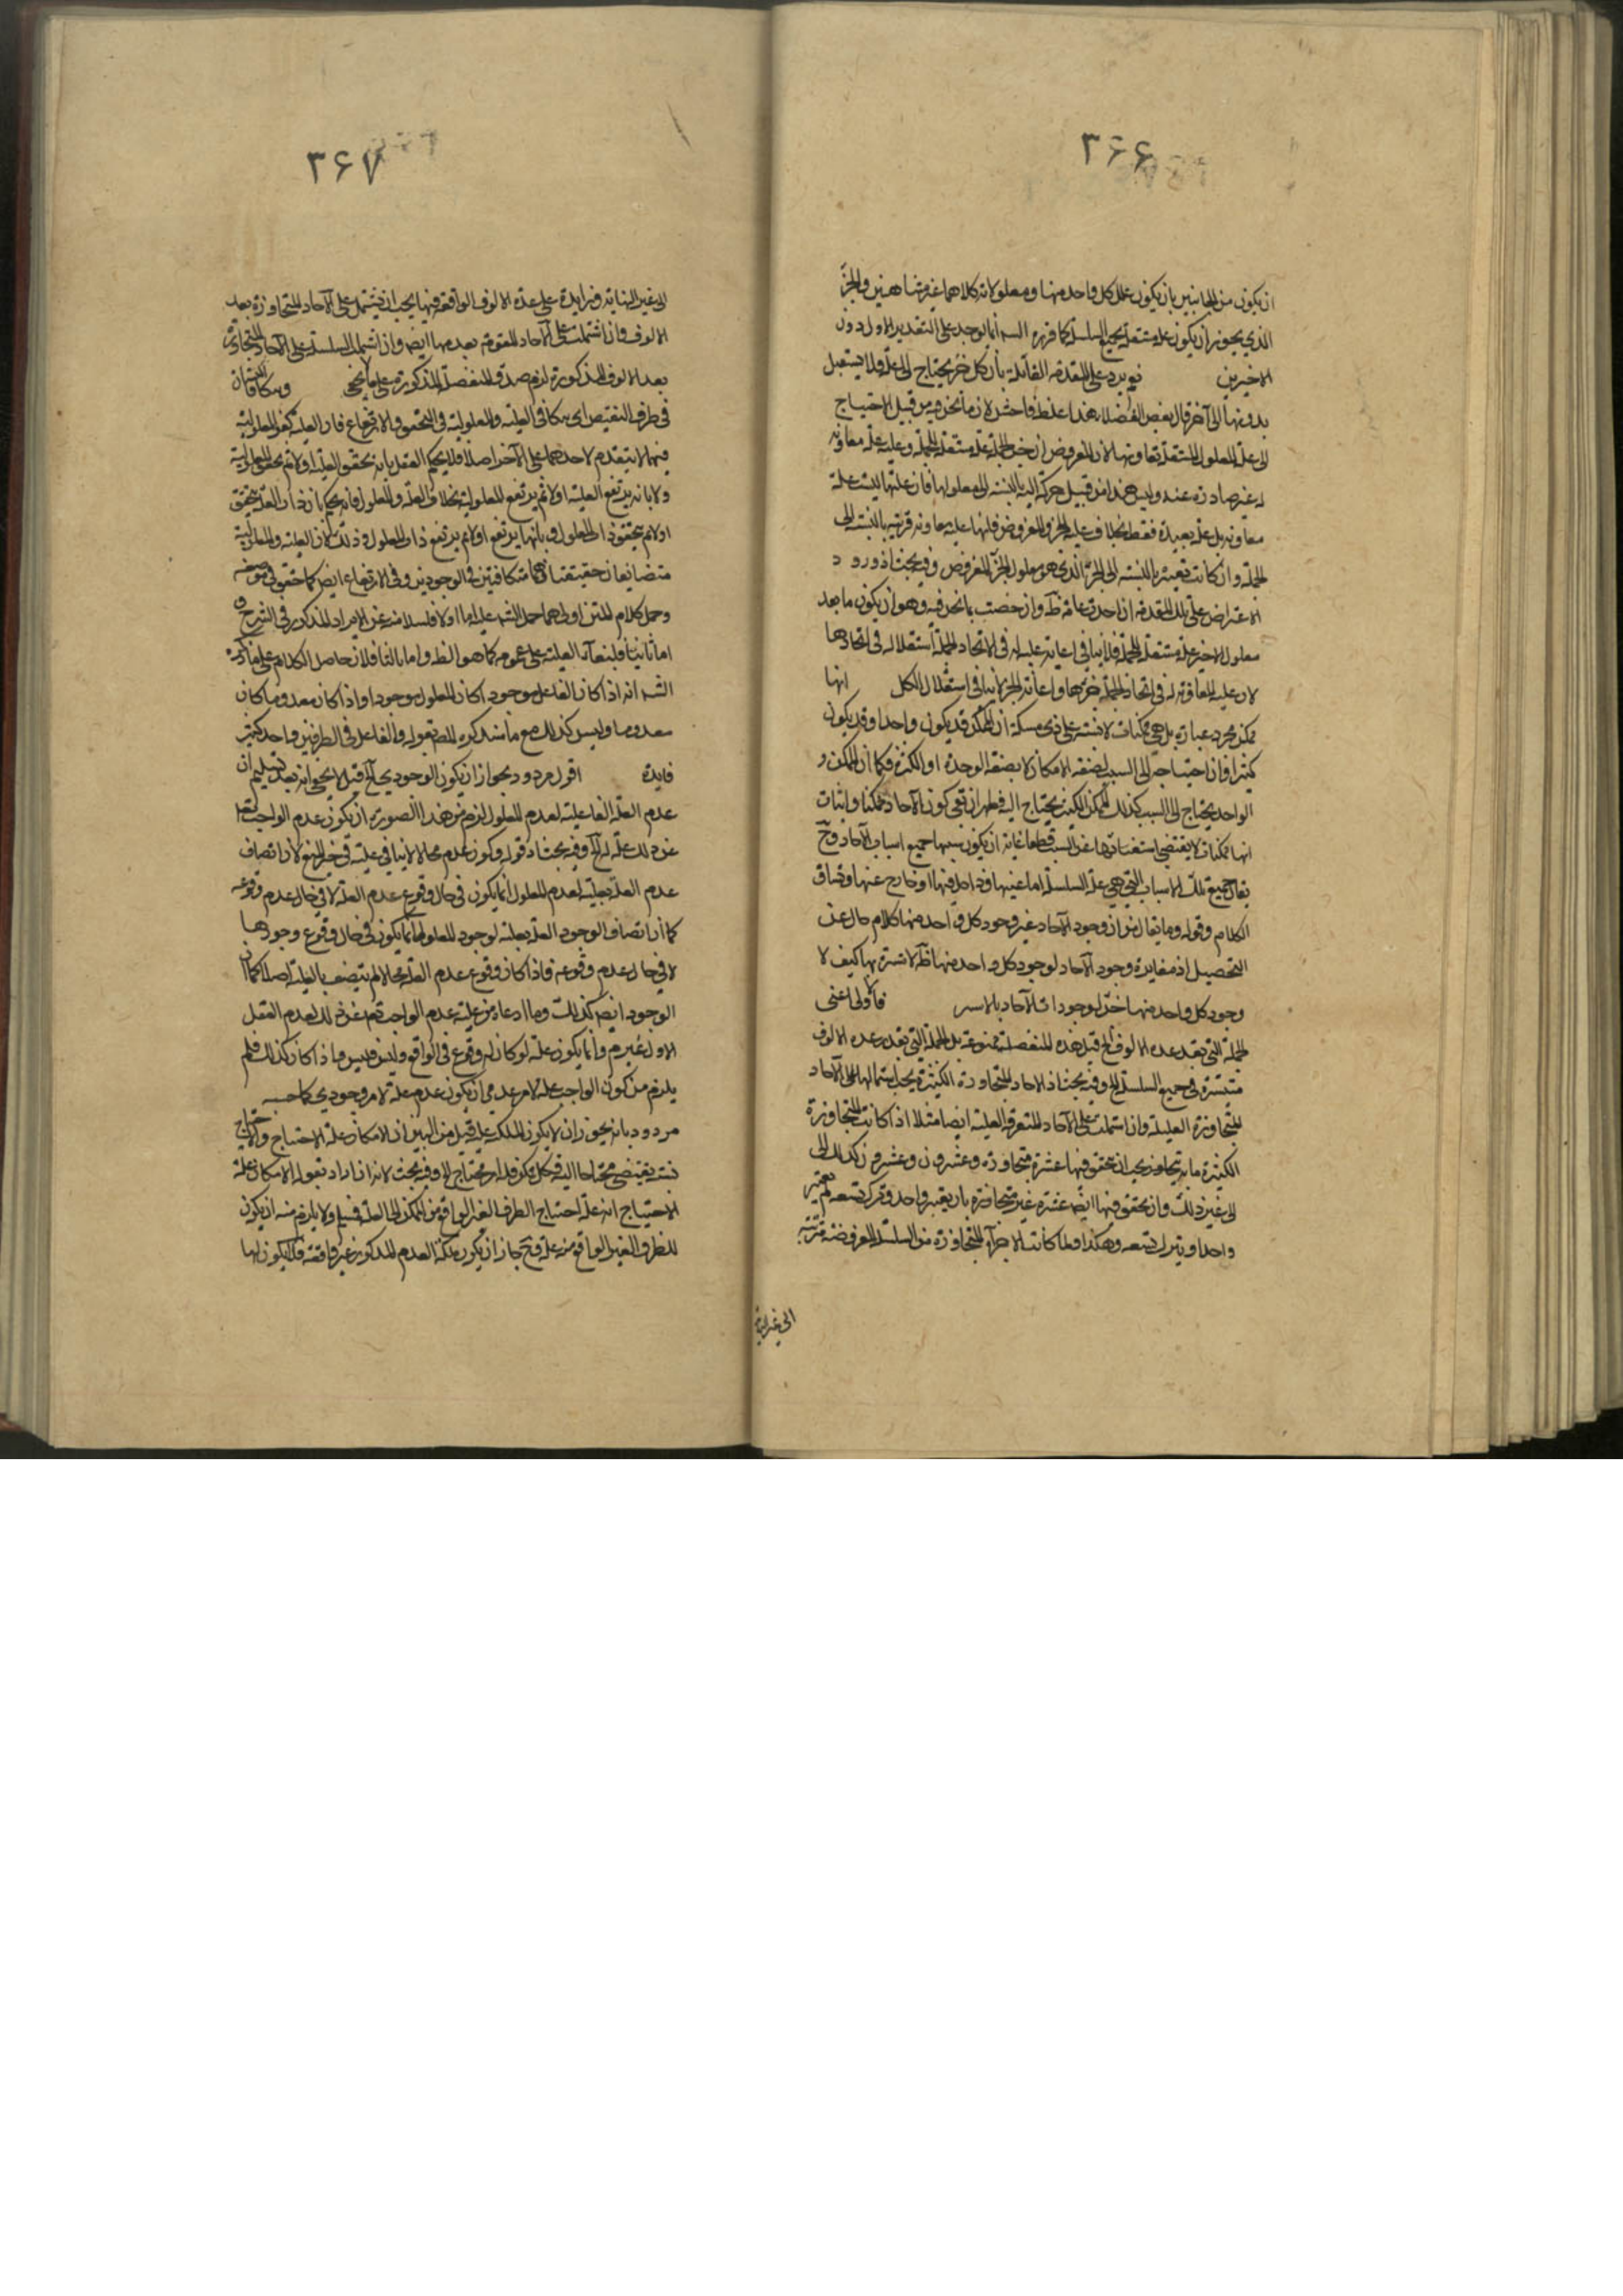 ۳۶۶
ان يكون من الجانبين بان يكون علل كل واحد منها ومعلولاته كلاهما غير متناهيين والجزء
الذي يجوز ان يكون علة مستقلة لجميع السلسلة كما قرره الش انما يوجد على التقدير الاول دون
الاخيرين يرد على المقدمة القائلة بان كل جزء يحتاج الى علة فلا يستقل
بدونها الى آخر قال بعض الفضلاء هذا غلط فاحش لان ما نحن فيه من قبيل الاحتياج
الى علة المعلول المستقلة بمعاونها لان المفروض ان جزء الجملة علة مستقلة للجملة وعليه علة معاونة
له غير صادرة عنه وليس هذا من قبيل حركة اليد بالنسبة الى معلولها فان علتها ليست علة
معاونة بل علة بعيدة فقط بخلاف علية الجزء المفروض فانها علة معاونة قريبة بالنسبة الى
الجملة وان كانت بعيدة بالنسبة الى الجزء الذي هو معلول الجزء المفروض وفيه بحث اذ ورود
الاعتراض على تلك المقدمة ان اخذت عامة ظ وان خصت بما نحن فيه وهو ان يكون ما بعد
معلول الاخير علة مستقلة للجملة فلا ينافي اعانة علية له في الاتحاد الجملة استقلاله في اتحادها
لان علية المعاونة له في اتحاد الجملة جزءها واعانة الجزء لا ينافي استقلال الكل انها
ممكن مجرد عبارة بل هي ممكنات لا يشتبه على ذي مسكة ان الممكن قد يكون واحدا وقد يكون
كثيرا فان احتياجه الى السبب لصفة الامكان لا بصفة الوحدة او الكثرة فكما ان الممكن
الواحد يحتاج الى السبب كذلك الممكن الكثير يحتاج اليه فظهر ان تعي كون الآحاد ممكنا واثبات
انها ممكنات لا يقتضي استغنائها عن السبب قطعا غايته ان يكون سببها جميع اسباب الآحاد وح
يقال جميع تلك الاسباب التي هي علة السلسلة اما عينها او داخل فيها او خارج عنها وتساق
الكلام وقوله وما يقال من ان وجود الآحاد غير وجود كل واحد منها كلام خال عن
التحصيل اذ مغايرة وجود الآحاد لوجود كل واحد منها ظ لا سترة بها كيف لا
وجود كل واحد منها جزء لوجودات الآحاد بالاسر فالاولى اعني
الجملة التي بقدر عدة الالوف الخ قيل هذه المنفصلة ممنوعة بل الجملة التي بقدر عدة الالوف
منتشرة في جميع السلسلة الخ وفيه بحث اذ الاحاد المتجاوزة الكثيرة يجب اشتمالها على الآحاد
المتجاوزة العليلة وان اشتملت على الآحاد المتفرقة العليلة ايضا مثلا اذا كانت المتجاوزة
الكثيرة مائة متجاوز يجب ان تحقق فيها عشرة متجاوزة وعشرون وعشرون كذلك الى
الى غير ذلك وان تحقق فيها ايضا عشرة غير متجاوزة بان يعتبر واحد وترك تسعة ثم يعتبر
واحد ويترك تسعة وهكذا ولما كانت الاجزاء المتجاوزة من السلسلة المفروضة مترتبة
الى غير النهاية
۳۶۷
الى غير النهاية وزايدة على عدة الالوف الواقعة فيها يجب ان يشتمل على الآحاد المتجاوزة بعدد
الالوف وان اشتملت على الآحاد المتفرقة بعددها ايضا وان اشتملت السلسلة على الآحاد المتجاوزة
بعد الالوف المذكورة لزم صدق المنفصلة المذكورة على ما لا يخفى ويتكافيان
في طرف النقيض اي يتكافى العلية والمعلولية في التحقق والارتفاع فان العلية كنفي المعلولية
فيهما لا يتقدم لاحدهما على الآخر اصلا فلا يحكم العقل بانه تحقق العلية اولا ثم تحقق المعلولية
ولا بانه يرتفع العلية اولا ثم يرتفع المعلولية بخلاف العلة والمعلول فانه يحكم بان ذات العلة يتحقق
اولا ثم يتحقق ذات المعلول وبانها يرتفع اولا ثم يرتفع ذات المعلول وذلك لان العلية والمعلولية
متضايفان حقيقيان فهما متكافيتين في الوجودين وفي الارتفاع ايضا كما حقق في موضعه
وحمل كلام المتن اولى مما حمل الش عليه اما اولا فلسلامته عن الايراد المذكور في الشرح و
اما ثانيا فلبقاء العلية على عمومه كما هو الظ واما ثالثا فلان حاصل الكلام على ما ذكره
الش انه اذا كان الفاعل موجودا كان المعلول موجودا واذا كان معدوما كان
معدوما وليس كذلك مع ما سيذكره المص بقوله والفاعل في الطرفين واحد كثير
فايدة اقول مردود بجواز ان يكون الوجودي الخ قيل لا يخفى انه بعد تسليم ان
عدم العلة الفاعلية لعدم المعلول لزم من هذا الصورة ان يكون عدم الواجب تعالى
عن ذلك علة له الخ وفيه بحث اذ قوله وكون عدم محالا لا ينافي عليته في حيز المنع لان اتصاف
عدم العلة بعليته لعدم المعلول انما يكون في حال وقوع عدم العلة لا في حال عدم وقوعه
كما ان اتصاف الوجود العلة بعلته لوجود المعلول انما يكون في حال وقوع وجودها
لا في حال عدم وقوعه فاذا كان وقوع عدم العلة محالا لم يتصف بالعلية اصلا كما ان
الوجود ايضا كذلك وما ادعاه من علية عدم الواجب تعالى عن ذلك لعدم العقل
الاول غير م وانما يكون علة لو كان له وقوع في الواقع وليس فليس واذا كان كذلك فلم
يلزم من كون الواجب علة لامر عدمي ان يكون عدم علة لامر وجودي كما حسبه
مردود بانه يجوز ان لا يكون الملكة علة قيل من البين ان الامكان علة الاحتياج والاحتياج
نسبة يقتضي محتاجا اليه فكل ممكن فله امر محتاج اليه وفيه بحث لانه ان اراد بقوله الامكان علة
الاحتياج انه علة احتياج الطرف الغير الواقع من الممكن الى العلة فسلم ولا يلزم منه ان يكون
للطرف الغير الواقع منه علة وح جاز ان يكون ملكة العدم المذكور غير واقعة فلا يكون لها